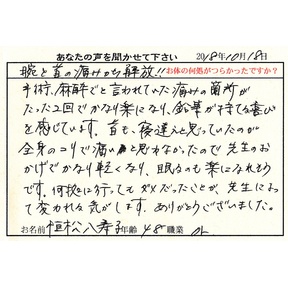 あなたの声を聞かせて下さい 2018年10月18日
腕と首の痛みから解放!! お体の何処がつらかったですか?
手術、麻酔でと言われていた痛みの箇所が
たった2回でかなり楽になり、鉛筆が持てる喜び
を感じています。首も、寝違えと思っていたのが
全身のコリで痛いと思わなかったので先生のお
かげでかなり軽くなり、眠るのも楽になれそう
です。何処に行ってもダメだったことが、先生によっ
て変われる気がします。ありがとうございました。
お名前 恒松八寿子 年齢 48 職業